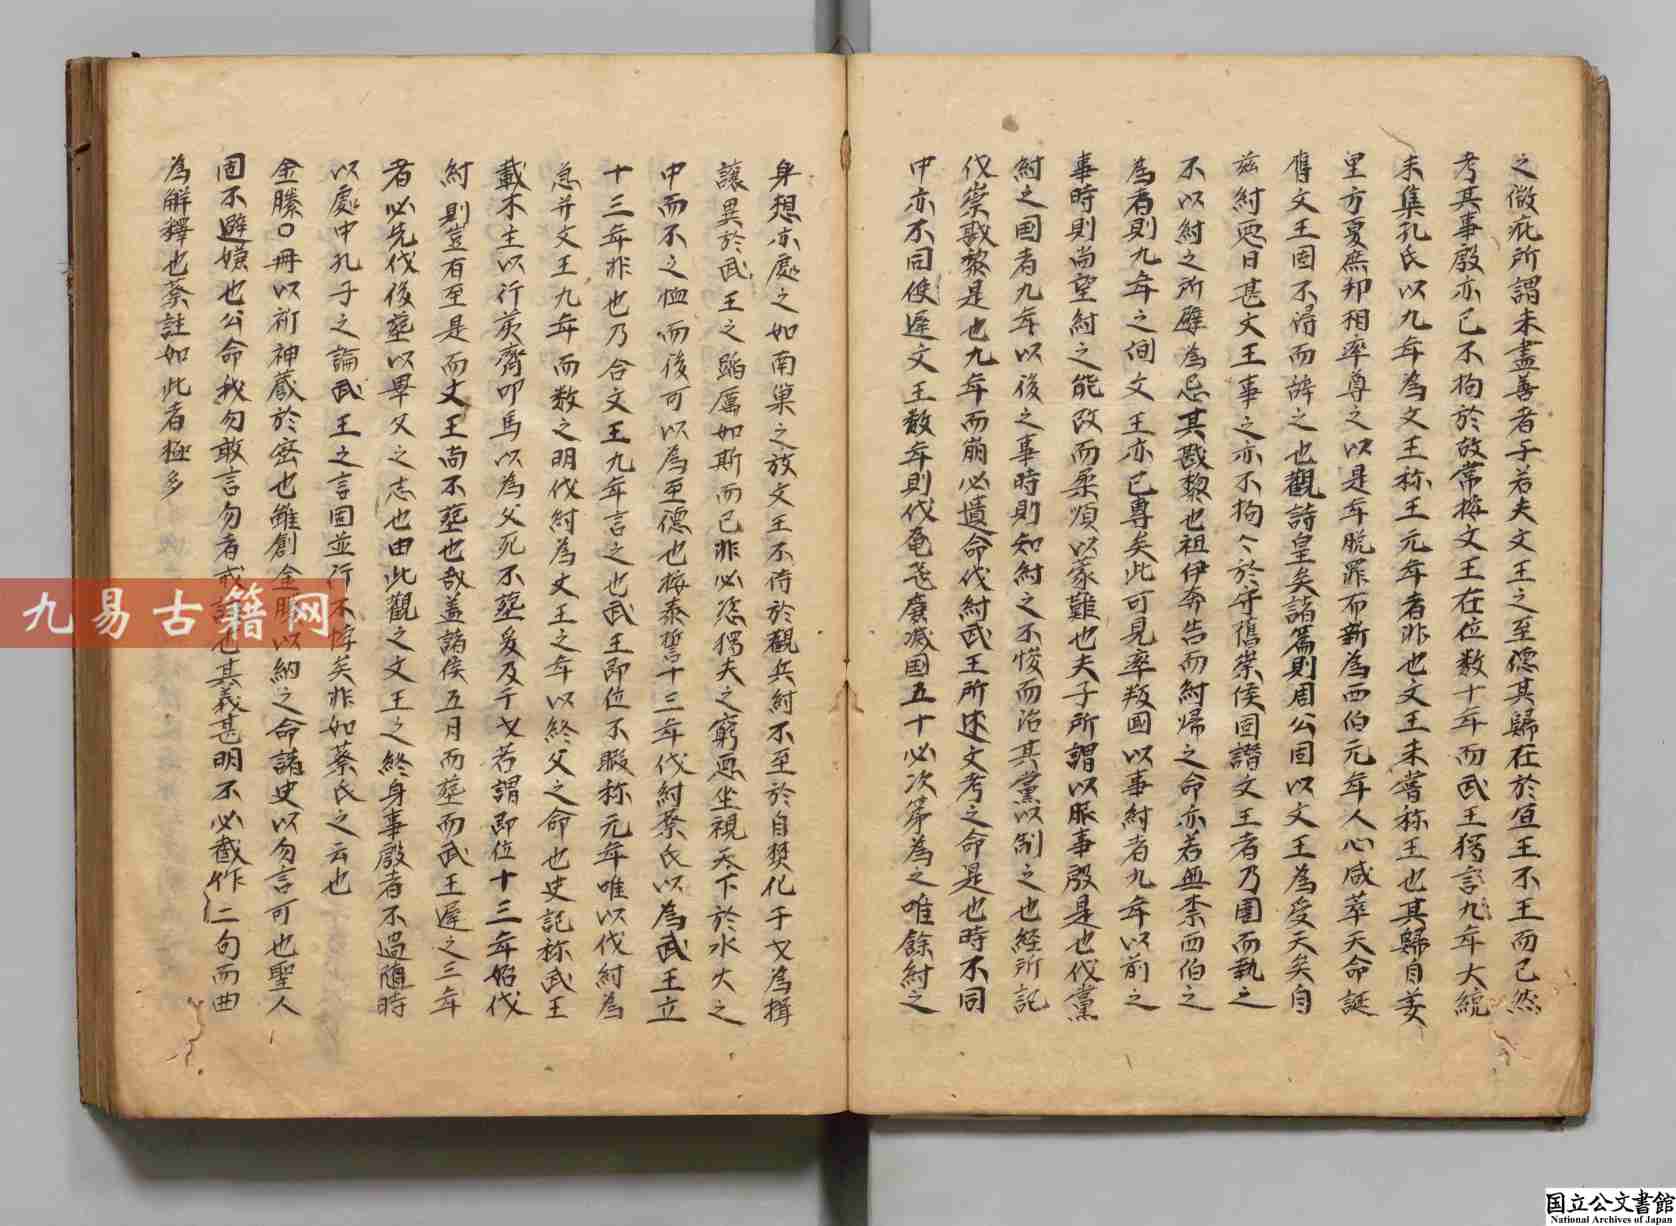 之微疵所謂未盡善者乎若夫文王之至德其歸在於宜王不王而已然
考其事殷亦已不拘於故常按文王在位数十年而武王獨言九年大統
未集孔氏以九年為文王称王元年者非也文王未嘗称王也其歸自羑
里方夏庶邦相率尊之以是年脱罪而新為西伯元年人心咸萃天命誕
膺文王固不得而辞之也觀詩皇矣諸篇則周公固以文王為受天矣自
兹紂悪日甚文王事之亦不拘々於守舊崇侯固譖文王者乃圍而執之
不以紂之所嬖為忌其戡黎也祖伊奔告而紂帰之命亦若無柰西伯之
為者則九年之間文王亦已專矣此可見率叛國以事紂者九年以前之
事時則尚望紂之能改而柔順以蒙難也夫子所謂以服事殷是也伐黨
紂之国者九年以後之事時則知紂之不悛而治其黨以制之也経所記
伐崇戡黎是也九年而崩必遺命伐紂武王所述文考之命是也時不同
中亦不同使遲文王数年則伐奄飛廉滅国五十必次第為之唯餘紂之
身想亦處之如南巢之放文王不待於觀兵紂不至於自焚化干戈為揖
讓異於武王之蹈厲如斯而已非必恣獨夫之窮悪坐視天下於水火之
中而不之恤而後可以為至德也按泰誓十三年伐紂蔡氏以為武王立
十三年非也乃合文王九年言之也武王即位不暇称元年唯以伐紂為
急并文王九年而数之明伐紂為文王之年以終父之命也史記称武王
載木主以行夷齊叩馬以為父死不葬爰及干戈若謂即位十三年始伐
紂則豈有至是而文王尚不葬也哉盖諸侯五月而葬而武王遲之三年
者必先伐後葬以畢父之志也由此觀之文王之終身事殷者不過随時
以處中孔子之論武王之言固並行不悖矣非如蔡氏之云也
金縢〇冊以祈神蔵於密也雖創金縢以納之命諸史以勿言可也聖人
固不避嫌也公命我勿敢言勿者戒詞也其義甚明不必截作二句而曲
為解釋也蔡註如此者極多
九易古籍网
国立公文書館
National Archives of Japan